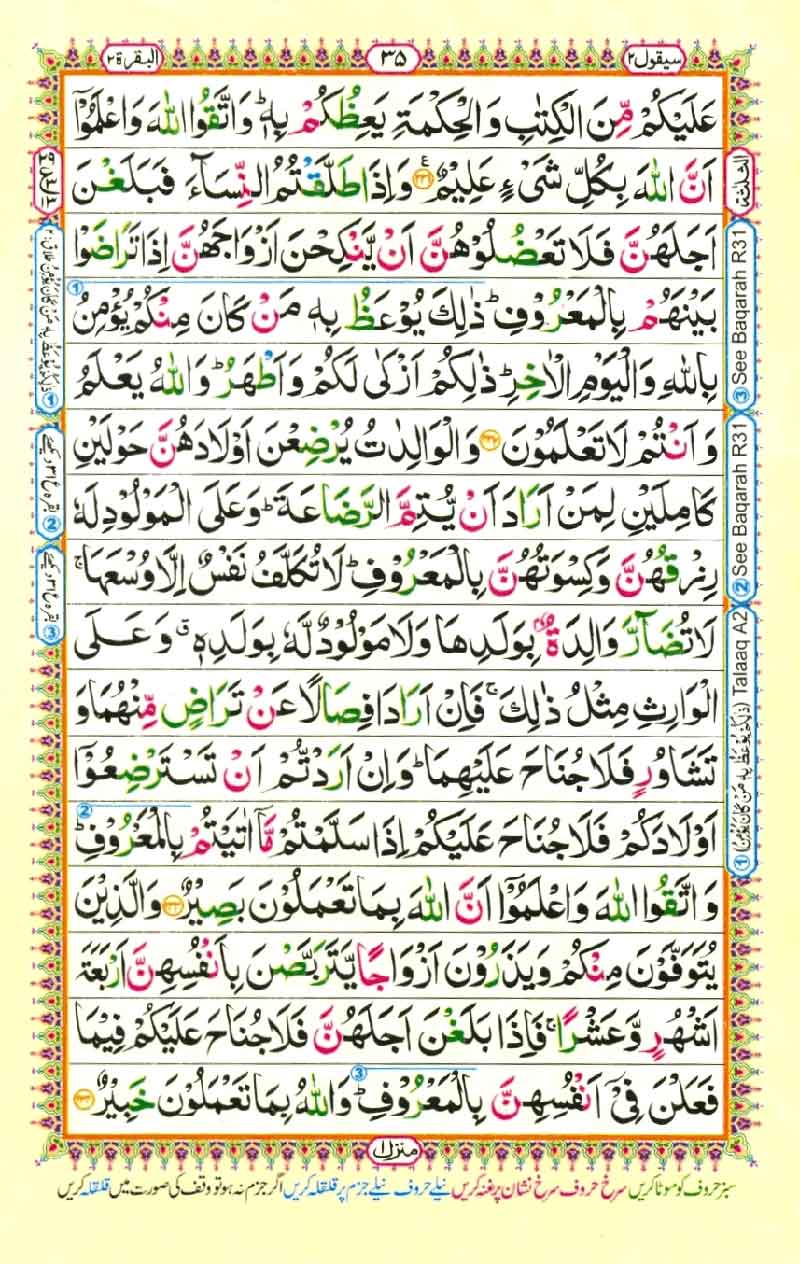 سيقول ٢
٣٥
البقرة ٢
عَلَيْكُمْ مِّنَ الْكِتٰبِ وَالْحِكْمَةِ يَعِظُكُمْ بِهٖ ؕ وَاتَّقُوا اللّٰهَ وَاعْلَمُوْۤا
اَنَّ اللّٰهَ بِكُلِّ شَىْءٍ عَلِيْمٌ ؑ ۝۲۳۱ وَاِذَا طَلَّقْتُمُ النِّسَآءَ فَبَلَغْنَ
اَجَلَهُنَّ فَلَا تَعْضُلُوْهُنَّ اَنْ يَّنْكِحْنَ اَزْوَاجَهُنَّ اِذَا تَرَاضَوْا
بَيْنَهُمْ بِالْمَعْرُوْفِ ؕ ذٰلِكَ يُوْعَظُ بِهٖ مَنْ كَانَ مِنْكُمْ يُؤْمِنُ
بِاللّٰهِ وَالْيَوْمِ الْاٰخِرِ ؕ ذٰلِكُمْ اَزْكٰى لَكُمْ وَاَطْهَرُ ؕ وَاللّٰهُ يَعْلَمُ
وَاَنْتُمْ لَا تَعْلَمُوْنَ ۝۲۳۲ وَالْوَالِدٰتُ يُرْضِعْنَ اَوْلَادَهُنَّ حَوْلَيْنِ
كَامِلَيْنِ لِمَنْ اَرَادَ اَنْ يُّتِمَّ الرَّضَاعَةَ ؕ وَعَلَى الْمَوْلُوْدِ لَهٗ
رِزْقُهُنَّ وَكِسْوَتُهُنَّ بِالْمَعْرُوْفِ ؕ لَا تُكَلَّفُ نَفْسٌ اِلَّا وُسْعَهَا ۚ
لَا تُضَآرَّ وَالِدَةٌۢ بِوَلَدِهَا وَلَا مَوْلُوْدٌ لَّهٗ بِوَلَدِهٖ ۗ وَعَلَى
الْوَارِثِ مِثْلُ ذٰلِكَ ۚ فَاِنْ اَرَادَا فِصَالًا عَنْ تَرَاضٍ مِّنْهُمَا وَ
تَشَاوُرٍ فَلَا جُنَاحَ عَلَيْهِمَا ؕ وَاِنْ اَرَدْتُّمْ اَنْ تَسْتَرْضِعُوْۤا
اَوْلَادَكُمْ فَلَا جُنَاحَ عَلَيْكُمْ اِذَا سَلَّمْتُمْ مَّاۤ اٰتَيْتُمْ بِالْمَعْرُوْفِ ؕ
وَاتَّقُوا اللّٰهَ وَاعْلَمُوْۤا اَنَّ اللّٰهَ بِمَا تَعْمَلُوْنَ بَصِيْرٌ ۝۲۳۳ وَالَّذِيْنَ
يُتَوَفَّوْنَ مِنْكُمْ وَيَذَرُوْنَ اَزْوَاجًا يَّتَرَبَّصْنَ بِاَنْفُسِهِنَّ اَرْبَعَةَ
اَشْهُرٍ وَّعَشْرًا ۚ فَاِذَا بَلَغْنَ اَجَلَهُنَّ فَلَا جُنَاحَ عَلَيْكُمْ فِيْمَا
فَعَلْنَ فِىْۤ اَنْفُسِهِنَّ بِالْمَعْرُوْفِ ؕ وَاللّٰهُ بِمَا تَعْمَلُوْنَ خَبِيْرٌ ۝۲۳۴
① ② ③
منزل ١
سبز حروف کو موٹا کریں سرخ حروف سرخ نشان پر غنہ کریں نیلے حروف نیلے جزم پر قلقلہ کریں اگر جزم نہ ہو تو وقف کی صورت میں قلقلہ کریں
الثلٰثة
③ See Baqarah R31
② See Baqarah R31
① Talaaq A2 (ذٰلِكُمْ يُوْعَظُ بِهٖ مَنْ كَانَ يُؤْمِنُ)
② بقرہ ع ۳۱ دیکھئے
③ بقرہ ع ۳۱ دیکھئے